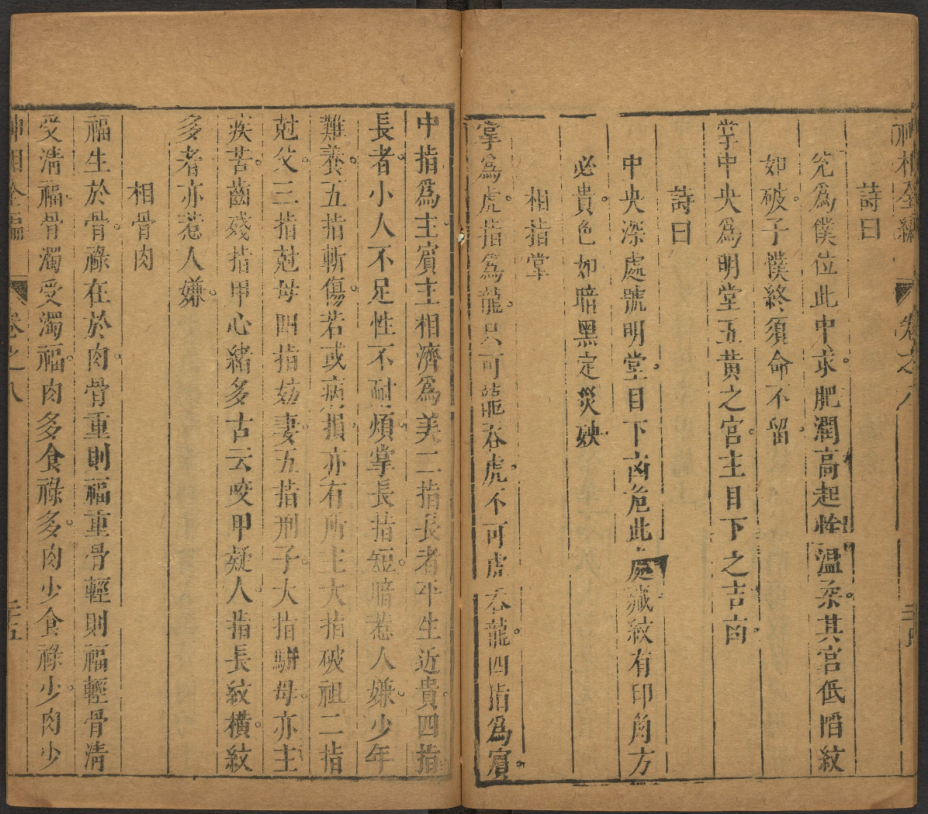 神相全編 卷之八
詩曰
兌爲僕位此中求。肥潤高起性溫柔。其宮低陷紋
如破。子僕終須命不留。
掌中央爲明堂五黃之宮。主目下之吉凶。
詩曰
中央深處號明堂。目下凶危此處藏。紋有印角方
必貴。色如暗黑定災殃。
相指掌
掌爲虎。指爲龍。只可龍吞虎。不可虎吞龍。四指爲賓。
中指爲主。賓主相濟爲美。二指長者。平生近貴。四指
長者。小人不足。性不耐煩。掌長指短。暗惹人嫌。少年
難養。五指斬傷。若或病損。亦有所主。大指破祖。二指
尅父。三指尅母。四指妨妻。五指刑子。大指駢母。亦主
疾苦。齒殘指甲。心緒多。古云咬甲疑人。指長紋橫。紋
多者。亦惹人嫌。
相骨肉
福生於骨。祿在於肉。骨重則福重。骨輕則福輕。骨清
受清福。骨濁受濁福。肉多食祿多。肉少食祿少。肉少
神相全編 卷之八 三十五